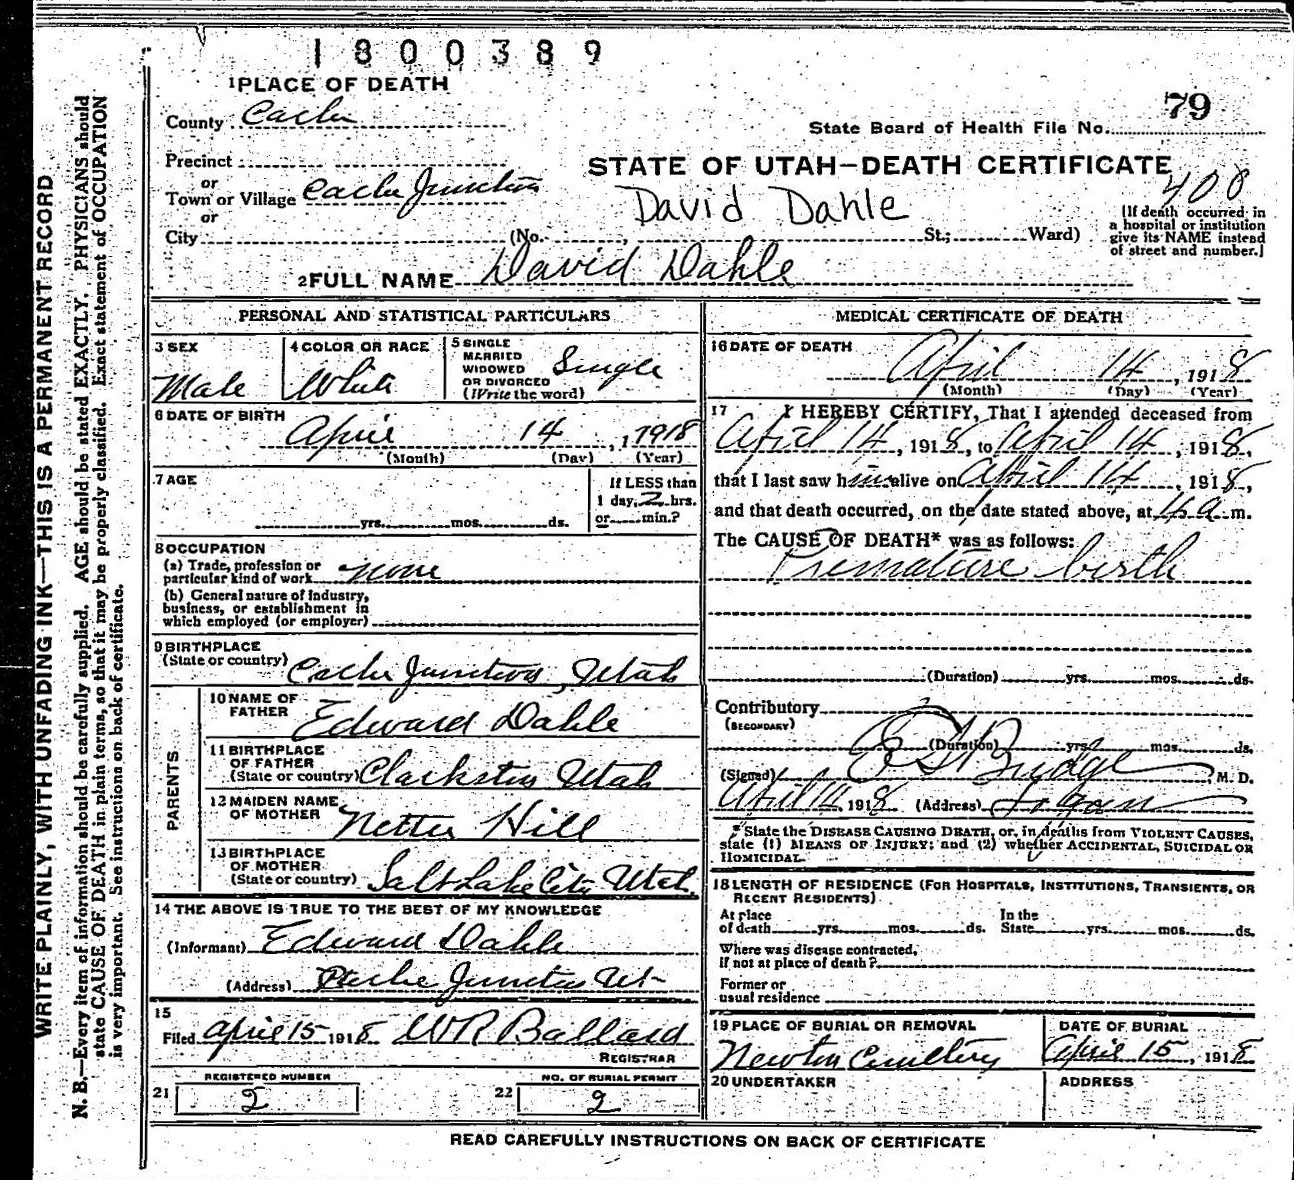 1800389
1 PLACE OF DEATH
79
County Cache
State Board of Health File No.
Precinct
or
Town or Village Cache Junction
STATE OF UTAH—DEATH CERTIFICATE
400
David Dahle
or
City (No. St.; Ward)
[If death occurred in
a hospital or institution
give its NAME instead
of street and number.]
2 FULL NAME David Dahle
PERSONAL AND STATISTICAL PARTICULARS
3 SEX
Male
4 COLOR OR RACE
White
5 SINGLE
MARRIED
WIDOWED
OR DIVORCED
(Write the word)
Single
6 DATE OF BIRTH
April 14, 1918
(Month) (Day) (Year)
7 AGE
yrs. mos. ds.
If LESS than
1 day, 2 hrs.
or min.?
8 OCCUPATION
(a) Trade, profession or
particular kind of work none
(b) General nature of industry,
business, or establishment in
which employed (or employer)
9 BIRTHPLACE
(State or country) Cache Junction, Utah
PARENTS
10 NAME OF
FATHER Edward Dahle
11 BIRTHPLACE
OF FATHER
(State or country) Clarkston Utah
12 MAIDEN NAME
OF MOTHER Nettie Hill
13 BIRTHPLACE
OF MOTHER
(State or country) Salt Lake City, Utah.
14 THE ABOVE IS TRUE TO THE BEST OF MY KNOWLEDGE
(Informant) Edward Dahle
(Address) Cache Junction Ut-
15
Filed April 15 1918 WR Ballard
REGISTRAR
REGISTERED NUMBER
21 2
NO. OF BURIAL PERMIT
22 2
MEDICAL CERTIFICATE OF DEATH
16 DATE OF DEATH
April 14, 1918
(Month) (Day) (Year)
17 I HEREBY CERTIFY, That I attended deceased from
April 14, 1918, to April 14, 1918,
that I last saw him alive on April 14, 1918,
and that death occurred, on the date stated above, at a m.
The CAUSE OF DEATH* was as follows:
Premature birth
(Duration) yrs. mos. ds.
Contributory
(SECONDARY)
(Duration) yrs. mos. ds.
(Signed) Budge M. D.
April 14, 1918 (Address) Logan
*State the DISEASE CAUSING DEATH, or, in deaths from VIOLENT CAUSES,
state (1) MEANS OF INJURY; and (2) whether ACCIDENTAL, SUICIDAL OR
HOMICIDAL
18 LENGTH OF RESIDENCE (FOR HOSPITALS, INSTITUTIONS, TRANSIENTS, OR
RECENT RESIDENTS)
At place
of death yrs. mos. ds.
In the
State yrs. mos. ds.
Where was disease contracted,
if not at place of death?
Former or
usual residence
19 PLACE OF BURIAL OR REMOVAL
Newton Cemetery
DATE OF BURIAL
April 15, 1918
20 UNDERTAKER
ADDRESS
READ CAREFULLY INSTRUCTIONS ON BACK OF CERTIFICATE
WRITE PLAINLY, WITH UNFADING INK—THIS IS A PERMANENT RECORD
N. B.—Every item of information should be carefully supplied. AGE should be stated EXACTLY. PHYSICIANS should
state CAUSE OF DEATH in plain terms, so that it may be properly classified. Exact statement of OCCUPATION
is very important. See instructions on back of certificate.